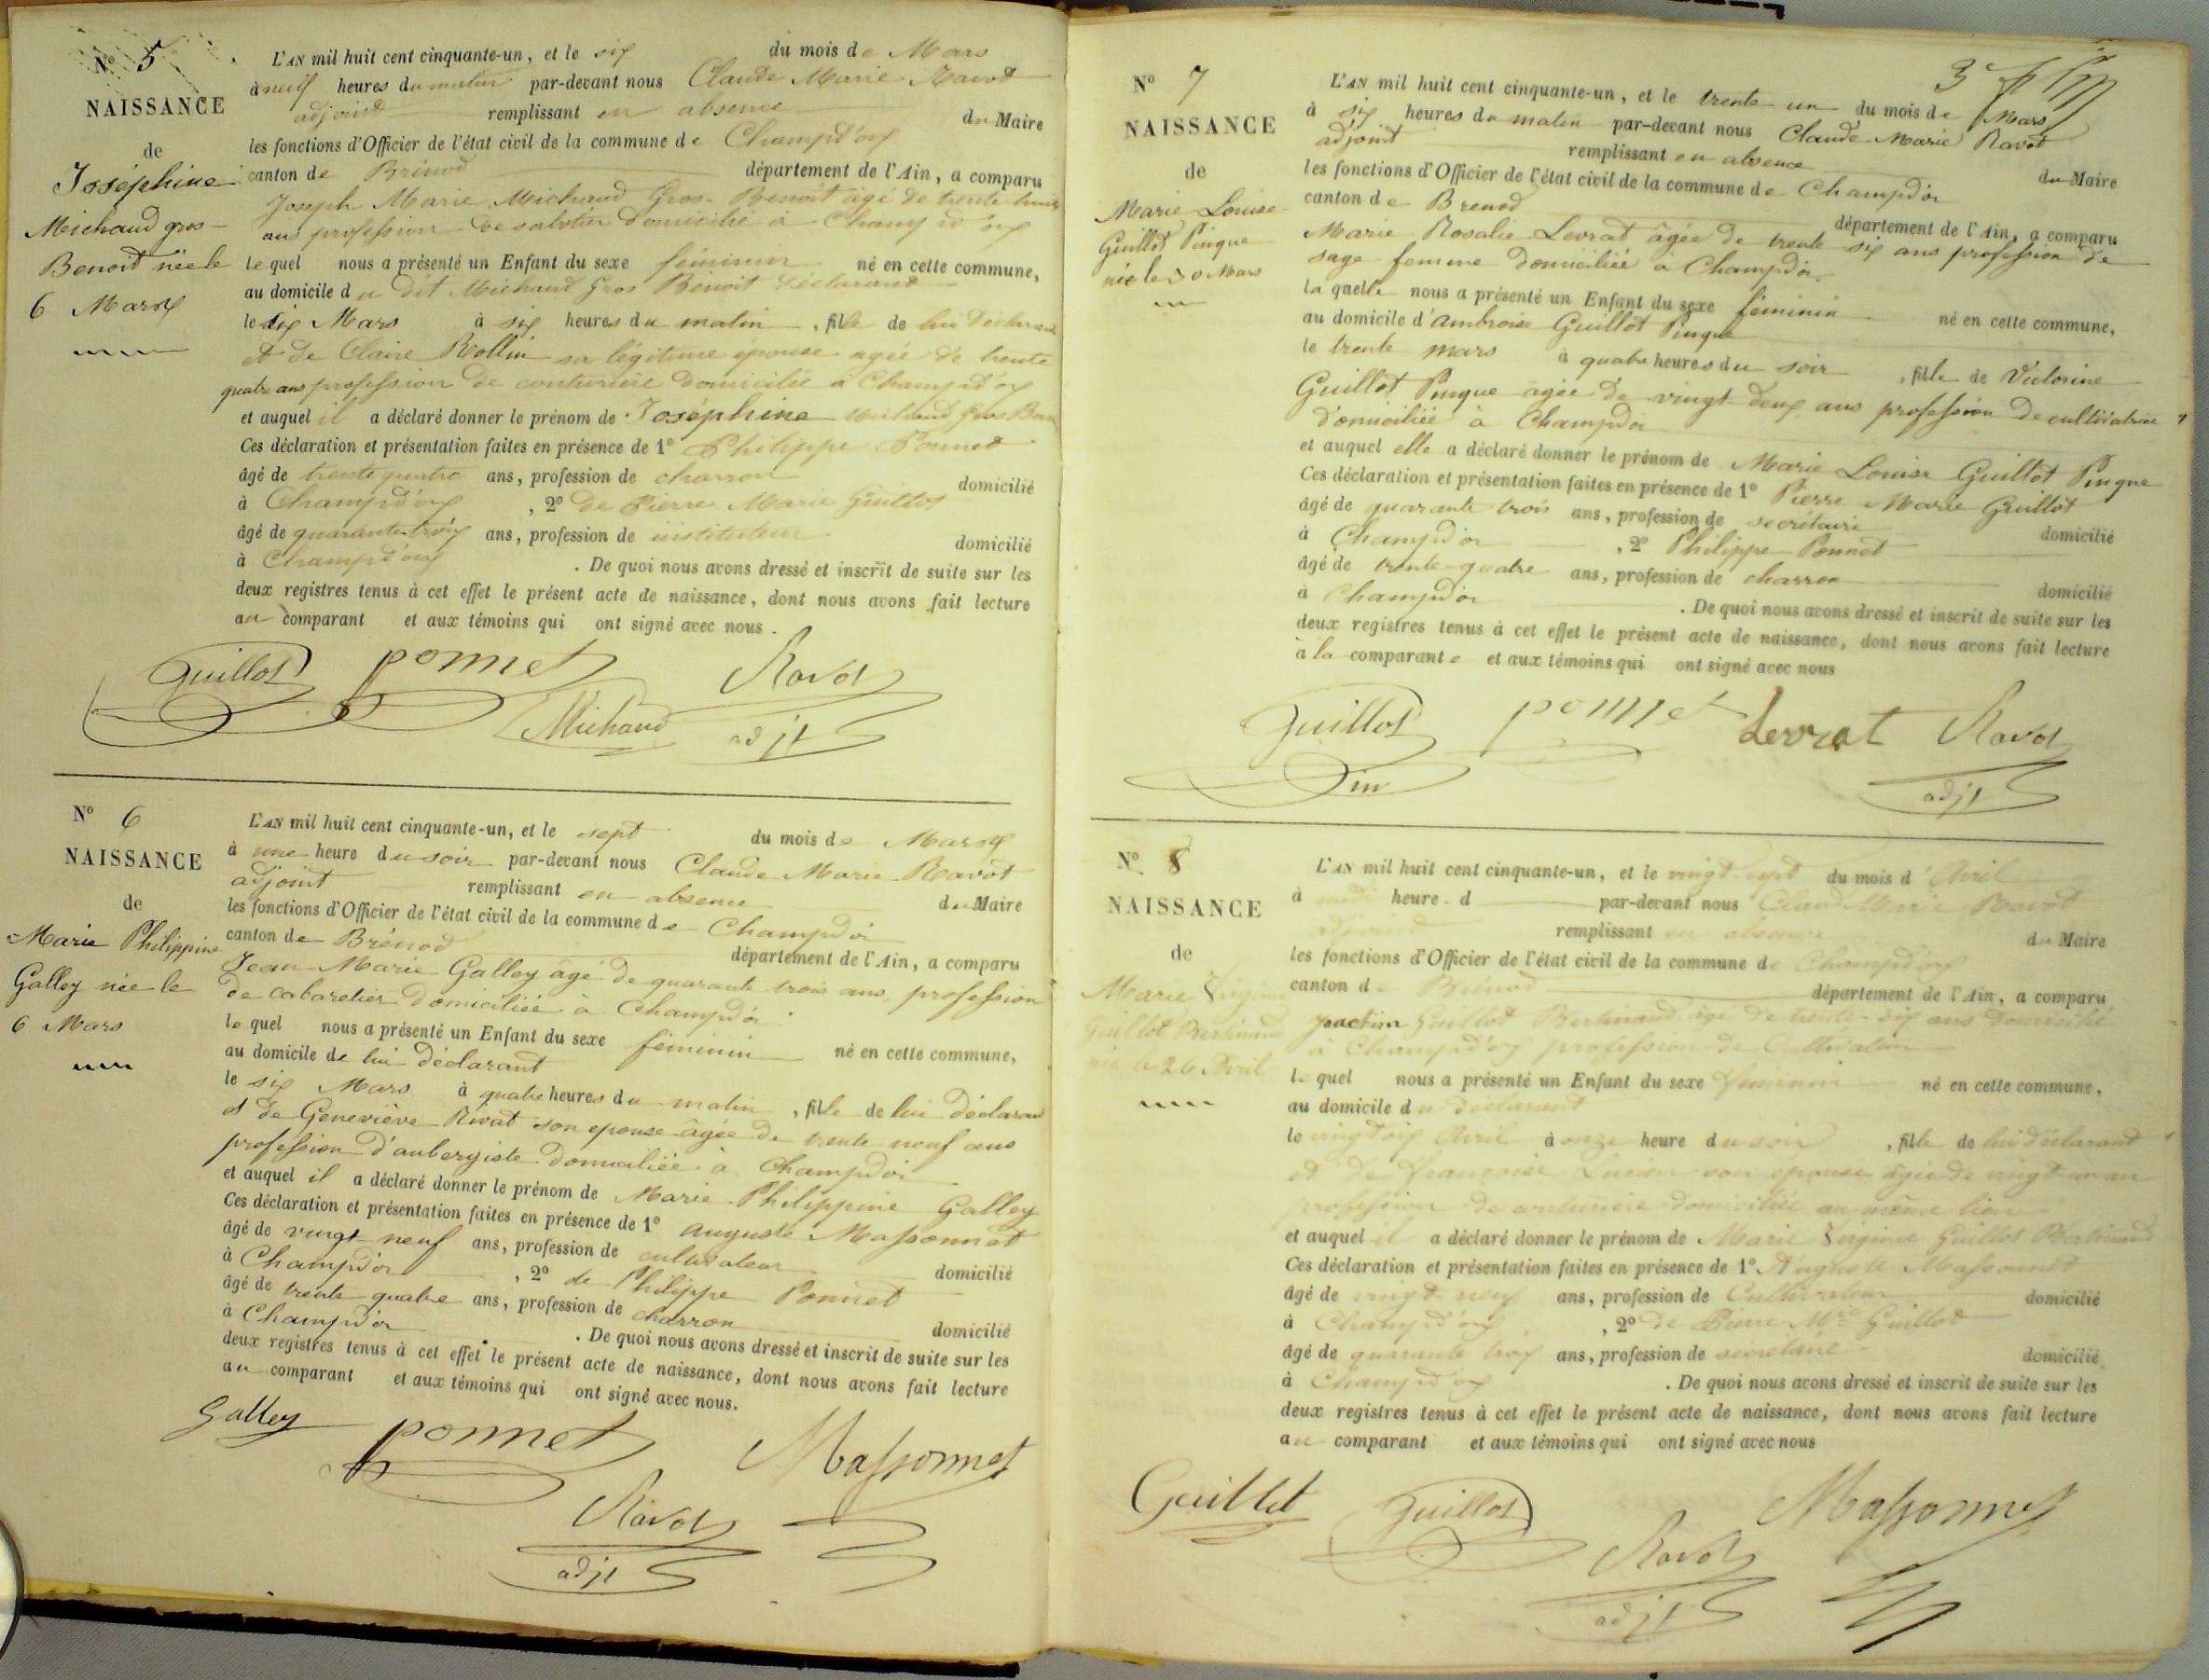 N° 5
NAISSANCE
de
Joséphine
Michaud gros-
Benoit née le
6 Marx
L'AN mil huit cent cinquante-un, et le six du mois de Mars
à neuf heures du matin par-devant nous Claude Marie Ravot
adjoint remplissant en absence du Maire
les fonctions d'Officier de l'état civil de la commune de Champd'ox
canton de Brénod département de l'Ain, a comparu
Joseph Marie Michaud Gros-Benoit âgé de trente huit
ans profession de sabotier domicilié à Champd'ox
lequel nous a présenté un Enfant du sexe féminin né en cette commune,
au domicile du dit Michaud Gros Benoit déclarant
le six Mars à six heures du matin, fille de lui déclarant
et de Claire Rollin sa légitime épouse agée de trente
quatre ans profession de couturière domiciliée à Champd'ox
et auquel il a déclaré donner le prénom de Joséphine Michaud Gros Benoit
Ces déclaration et présentation faites en présence de 1° Philippe Ponnet
âgé de trente quatre ans, profession de charron domicilié
à Champd'ox, 2° de Pierre Marie Guillot
âgé de quarante troix ans, profession de instituteur domicilié
à Champd'ox. De quoi nous avons dressé et inscrit de suite sur les
deux registres tenus à cet effet le présent acte de naissance, dont nous avons fait lecture
au comparant et aux témoins qui ont signé avec nous.
Guillot ponnet Ravot
Michaud adjt
N° 6
NAISSANCE
de
Marie Philippine
Galley née le
6 Mars
L'AN mil huit cent cinquante-un, et le sept du mois de Marx
à une heure du soir par-devant nous Claude Marie Ravot
adjoint remplissant en absence du Maire
les fonctions d'Officier de l'état civil de la commune de Champdor
canton de Brénod département de l'Ain, a comparu
Jean-Marie Galley âgé de quarante trois ans, profession
de cabaretier domiciliée à Champdor
lequel nous a présenté un Enfant du sexe féminin né en cette commune,
au domicile de lui déclarant
le six Mars à quatre heures du matin, fille de lui déclarant
et de Geneviève Rivat son epouse âgée de trente neuf ans
profession d'aubergiste domiciliée à Champdor
et auquel il a déclaré donner le prénom de Marie Philippine Galley
Ces déclaration et présentation faites en présence de 1° Auguste Massonnet
âgé de vingt neuf ans, profession de cultivateur domicilié
à Champdor, 2° de Philippe Ponnet
âgé de trente quatre ans, profession de charron domicilié
à Champdor. De quoi nous avons dressé et inscrit de suite sur les
deux registres tenus à cet effet le présent acte de naissance, dont nous avons fait lecture
au comparant et aux témoins qui ont signé avec nous.
Galley ponnet Massonnet
Ravot
adjt
3e
N° 7
NAISSANCE
de
Marie Louise
Guillot Pingue
née le 30 Mars
L'AN mil huit cent cinquante-un, et le trente un du mois de Mars
à six heures du matin par-devant nous Claude Marie Ravot
adjoint remplissant en absence du Maire
les fonctions d'Officier de l'état civil de la commune de Champdor
canton de Brenod département de l'Ain, a comparu
Marie Rosalie Levrat âgée de trente six ans profession de
sage femme domiciliée à Champdor
laquelle nous a présenté un Enfant du sexe féminin né en cette commune,
au domicile d'Ambroise Guillot Pingue
le trente mars à quatre heures du soir, fille de Victorine
Guillot Pingue âgée de vingt deux ans profession de cultivatrice
domiciliée à Champdor
et auquel elle a déclaré donner le prénom de Marie Louise Guillot Pingue
Ces déclaration et présentation faites en présence de 1° Pierre Marie Guillot
âgé de quarante trois ans, profession de secrétaire domicilié
à Champdor, 2° Philippe Ponnet
âgé de trente-quatre ans, profession de charron domicilié
à Champdor. De quoi nous avons dressé et inscrit de suite sur les
deux registres tenus à cet effet le présent acte de naissance, dont nous avons fait lecture
à la comparante et aux témoins qui ont signé avec nous
Guillot ponnet Levrat Ravot
adjt
N° 8
NAISSANCE
de
Marie Virginie
Guillot Bertinand
née le 26 Avril
L'AN mil huit cent cinquante-un, et le vingt-sept du mois d'Avril
à midi heure d par-devant nous Claude Marie Ravot
adjoint remplissant en absence du Maire
les fonctions d'Officier de l'état civil de la commune de Champd'ox
canton de Brénod département de l'Ain, a comparu
Joachim Guillot Bertinand âgé de trente-six ans domicilié
à Champd'ox profession de Cultivateur
lequel nous a présenté un Enfant du sexe féminin né en cette commune,
au domicile du déclarant
le vingt six Avril à onze heure du soir, fille de lui déclarant
et de Françoise Lucien son epouse âgée de vingt-un an
profession de couturière domiciliée au même lieu
et auquel il a déclaré donner le prénom de Marie Virginie Guillot Bertinand
Ces déclaration et présentation faites en présence de 1° Auguste Massonnet
âgé de vingt-neuf ans, profession de Cultivateur domicilié
à Champd'ox, 2° de Pierre Mie Guillot
âgé de quarante troix ans, profession de secrétaire domicilié
à Champd'ox. De quoi nous avons dressé et inscrit de suite sur les
deux registres tenus à cet effet le présent acte de naissance, dont nous avons fait lecture
au comparant et aux témoins qui ont signé avec nous
Guillot Guillot Massonnet
Ravot
adjt